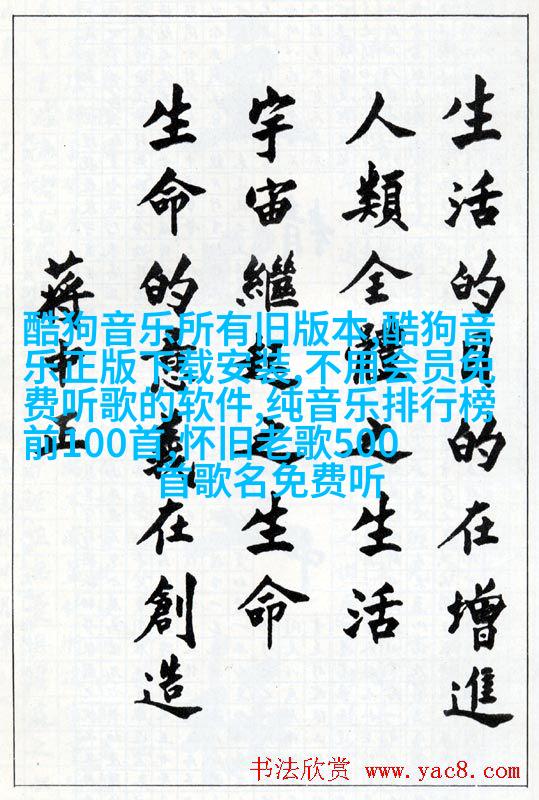 生活的目的在增進
人類全體之生活
宇宙繼起之生命
生命的意義在創造
蔣中正
酷狗音乐所有旧版本,酷狗音
乐正版下载安装,不用会员免
费听歌的软件,纯音乐排行榜
前100首,怀旧老歌500
首歌名免费听
书法欣赏 www.yac8.com